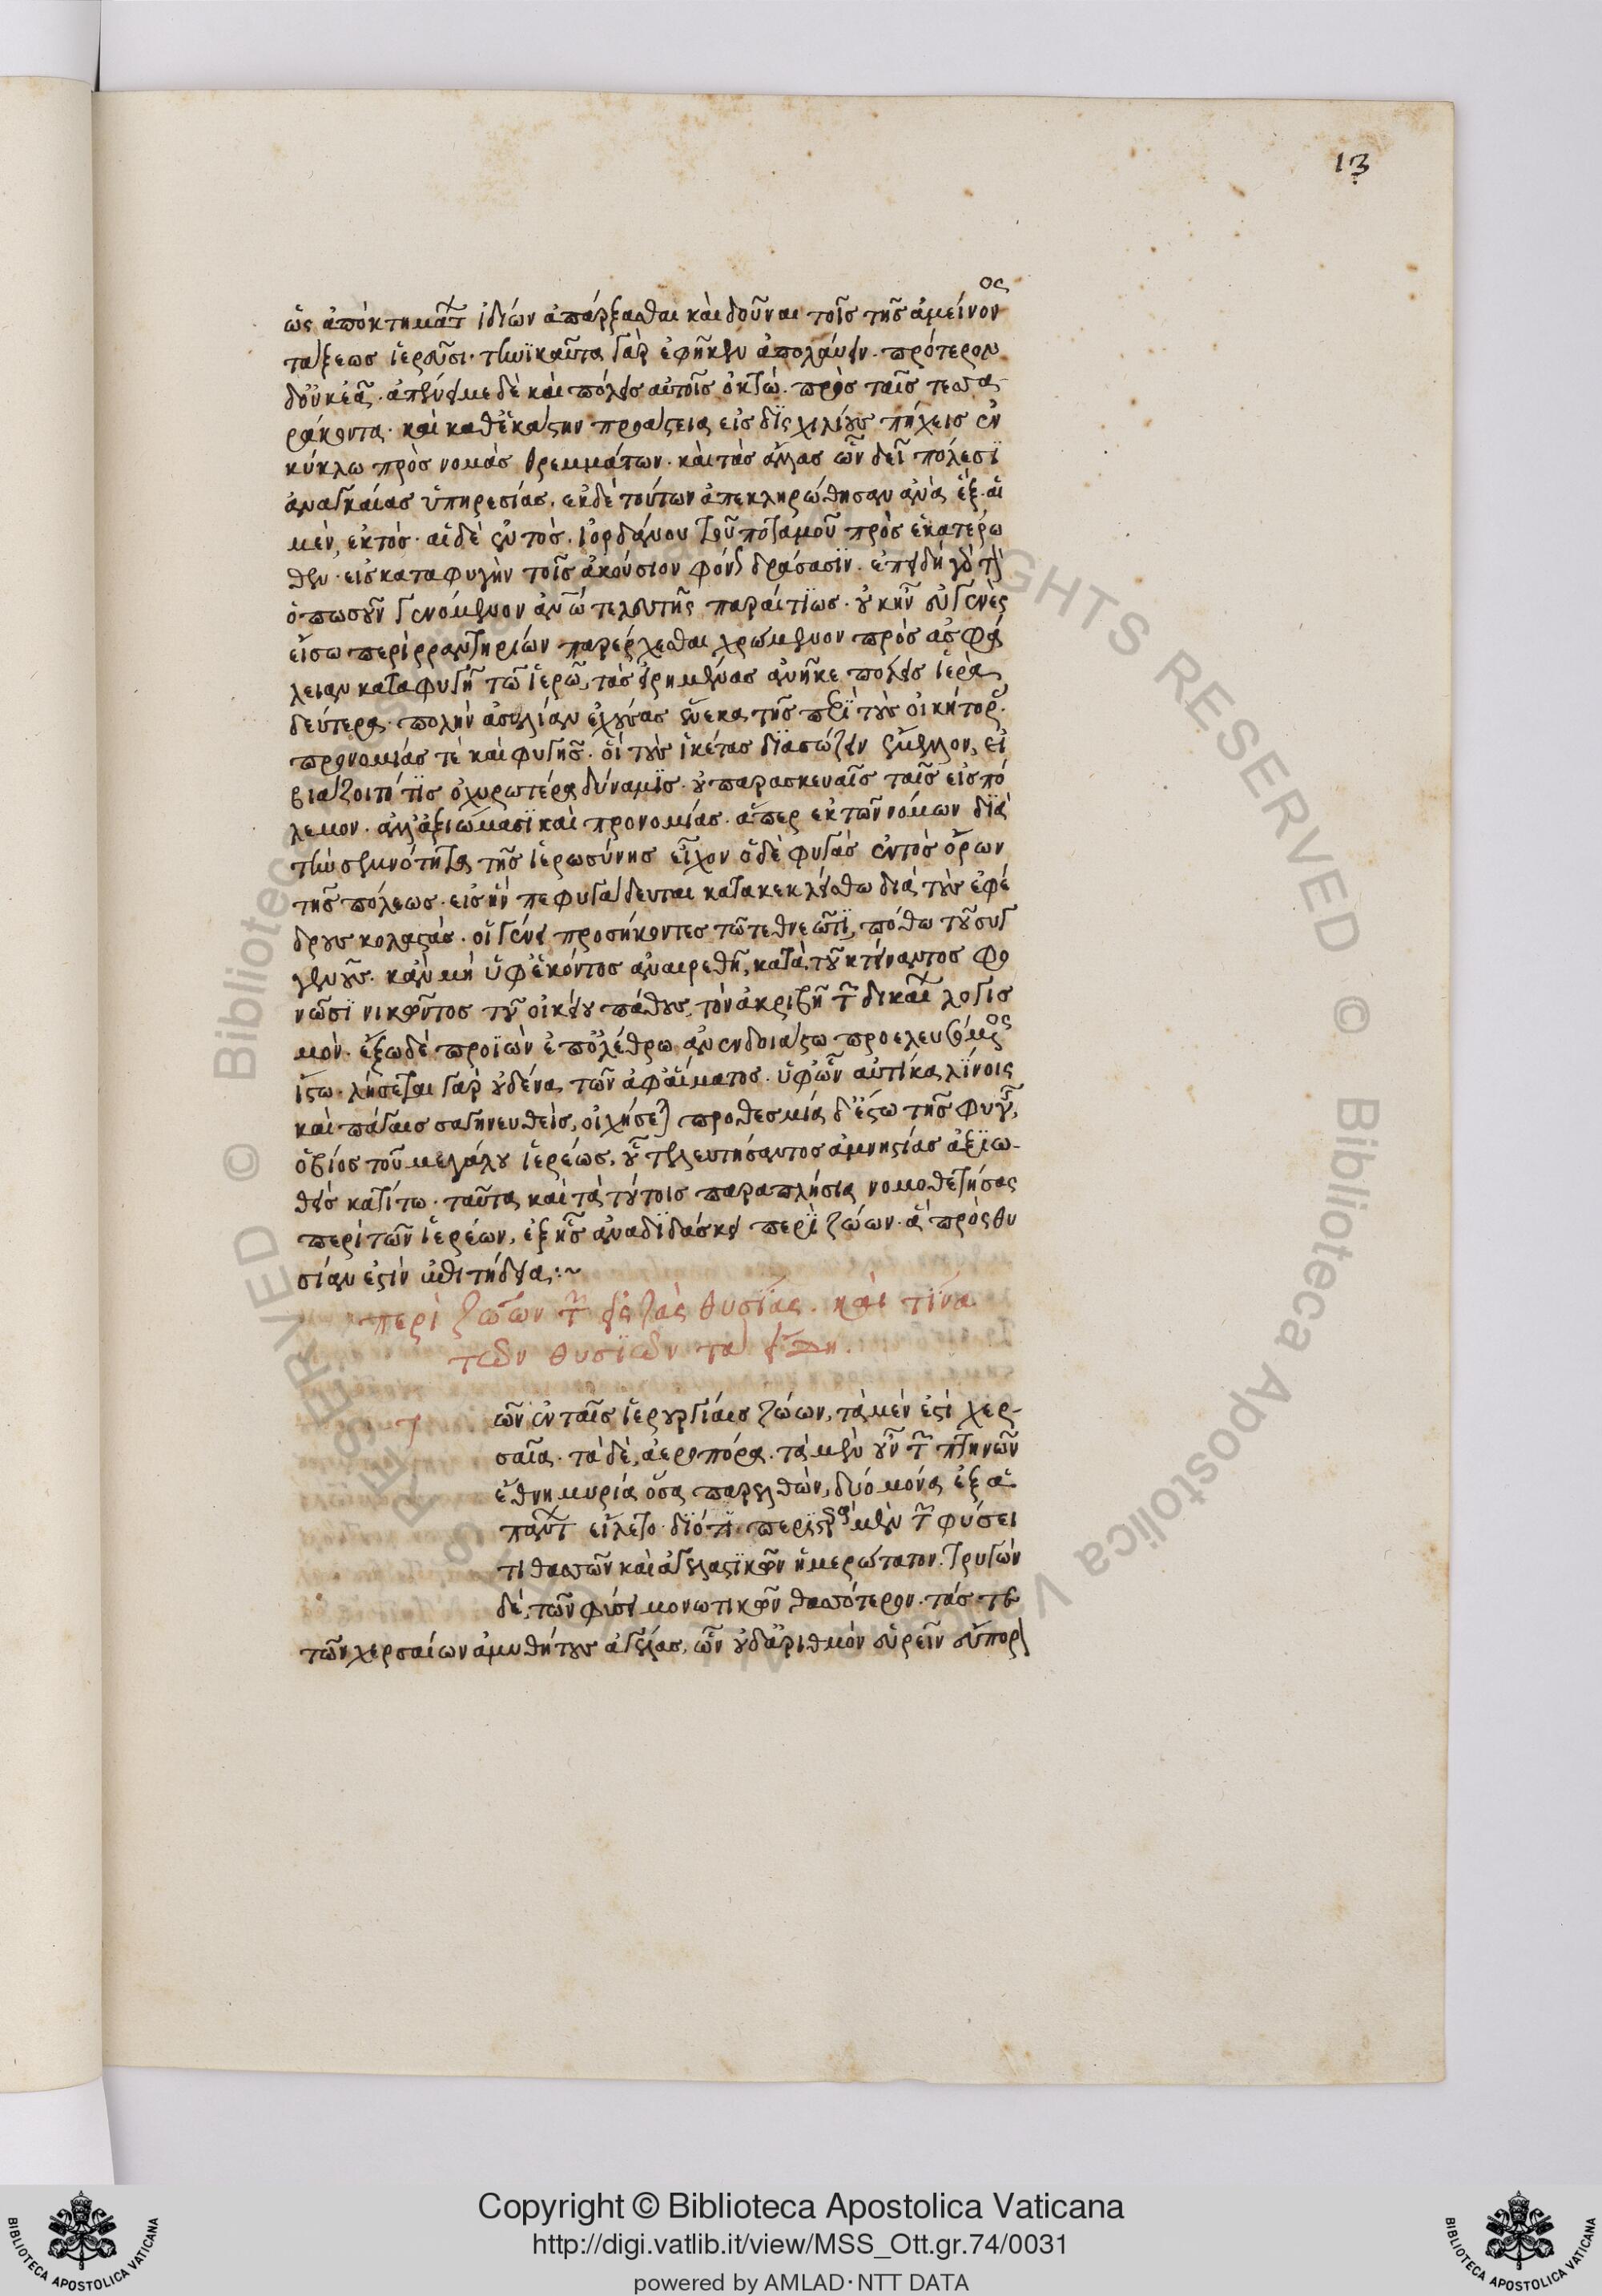 13
ὡς ἀπὸ κτημάτ ἰδίων ἀπάρξασθαι καὶ δοῦναι τοῖς τῆς ἀμείνονος
τάξεως ἱεροῦσι· τηνικαῦτα γὰρ ἐφῆκεν ἀπολαύειν· πρότερον
δ' οὐκ ἐᾷ. ἀπένειμε δὲ καὶ πόλεις αὐτοῖς ὀκτὼ πρὸς ταῖς τεσσα
ράκοντα· καὶ καθ' ἑκάστην προάστεια εἰς δισχιλίους πήχεις ἐν
κύκλω πρὸς νομὰς θρεμμάτων· καὶ τὰς ἄλλας ὧν δεῖ πόλεσι
ἀναγκαίας ὑπηρεσίας. ἐκ δὲ τούτων ἀπεκληρώθησαν ἀνὰ ἕξ· αἱ
μὲν, ἐκτὸς· αἱ δὲ ἐντὸς, ἰορδάνου τοῦ ποταμοῦ πρὸς ἑκατέρω
θεν· εἰς καταφυγὴν τοῖς ἀκούσιον φόν δράσασιν. ἐπειδὴ γὰρ τ
ὁπωσοῦν γενόμενον ἀνω τελευτῆς παραίτιως· οὐκ ἦν εὐαγὲς
εἴσω περιρραντηρίων παρέρχεσθαι χρώμενον πρὸς ἀσφά
λειαν καταφυγῇ τῶ ἱερῶ, τὰς εἰρημένας ἀνῆκε πόλεις ἱερὰ
δεύτερα· πολὴν ἀσυλίαν ἐχούσας ἕνεκα τῆς περὶ τοὺς οἰκήτορ.
προνομίας τὲ καὶ φυγῆς· οἵ τοὺς ἱκέτας διασώζειν ἔμελλον, εἰ
βιάζοιτό τις ὀχυρωτέρα δύναμις· οὐ παρασκευαῖς ταῖς εἰς πό
λεμον· ἀλλ' ἀξιώμασι καὶ προνομίας· ἅπερ ἐκ τῶν νόμων διὰ
τὴν σεμνότητα τῆς ἱερωσύνης εἶχον· ὁ δὲ φυγὰς ἐντὸς ὅρων
τῆς πόλεως· εἰς ἣν πεφυγάδευται κατακεκλείσθω διὰ τοὺς ἐφέ
δρους κολαστάς· οἳ γένει προσήκοντες τῶ τεθνεῶτι, πόθω τοῦ συγ
γενοῦς· κἂν μὴ ὑφ' ἑκόντος ἀναιρεθῇ, κατὰ τοῦ κτείναντος φο
νῶσι νικῶντος τοῦ οἰκείου πάθους, τὸν ἀκριβῆ τ δικαί λογισ
μόν. ἔξω δὲ προϊὼν ἐπ' ὀλέθρω ἀνενδοιάστω προελευσόμενος
ἴστω· λήσεται γὰρ οὐδένα τῶν ἀφ' αἵματος· ὑφ' ὧν αὐτίκα λίνοις
καὶ πάγαις σαγηνευθεὶς, οἰχήσεται προθεσμία δ' ἔστω τῆς φυγῆς,
ὁ βίος τοῦ μεγάλου ἱερέως, οὗ τελευτήσαντος ἀμνηστίας ἀξιω-
θεὶς κατίτω· ταῦτα καὶ τὰ τούτοις παραπλήσια νομοθετήσας
περὶ τῶν ἱερέων, ἑξῆς ἀναδιδάσκει περὶ ζώων· ἃ πρὸς θυ
σίαν ἐστὶν ἐπιτήδεια:~
περὶ ζώων τ εἰς τὰς θυσίας. καὶ τίνα
τῶν θυσιῶν τὰ εἴδη.
τ ῶν ἐν ταῖς ἱερουργίαις ζώων, τὰ μὲν ἐστὶ χερ-
σαῖα· τὰ δὲ, ἀεροπόρα· τὰ μὲν οὖν τ πτηνῶν
ἔθνη μυρία ὅσα παρελθὼν, δύο μόνα ἐξ ἁ
πάντ εἵλετο· διότι· περιστερά μὲν τ φύσει
τιθασσῶν καὶ ἀγελαστικῶν ἡμερώτατον. τρυγὼν
δὲ, τῶν φύσει μονωτικῶν θασσότερον. τάς τε
τῶν χερσαίων ἀμυθήτους ἀγέλας, ὧν οὐδ' ἀριθμὸν εὑρεῖν εὔπορ
Copyright © Biblioteca Apostolica Vaticana
http://digi.vatlib.it/view/MSS_Ott.gr.74/0031
powered by AMLAD·NTT DATA